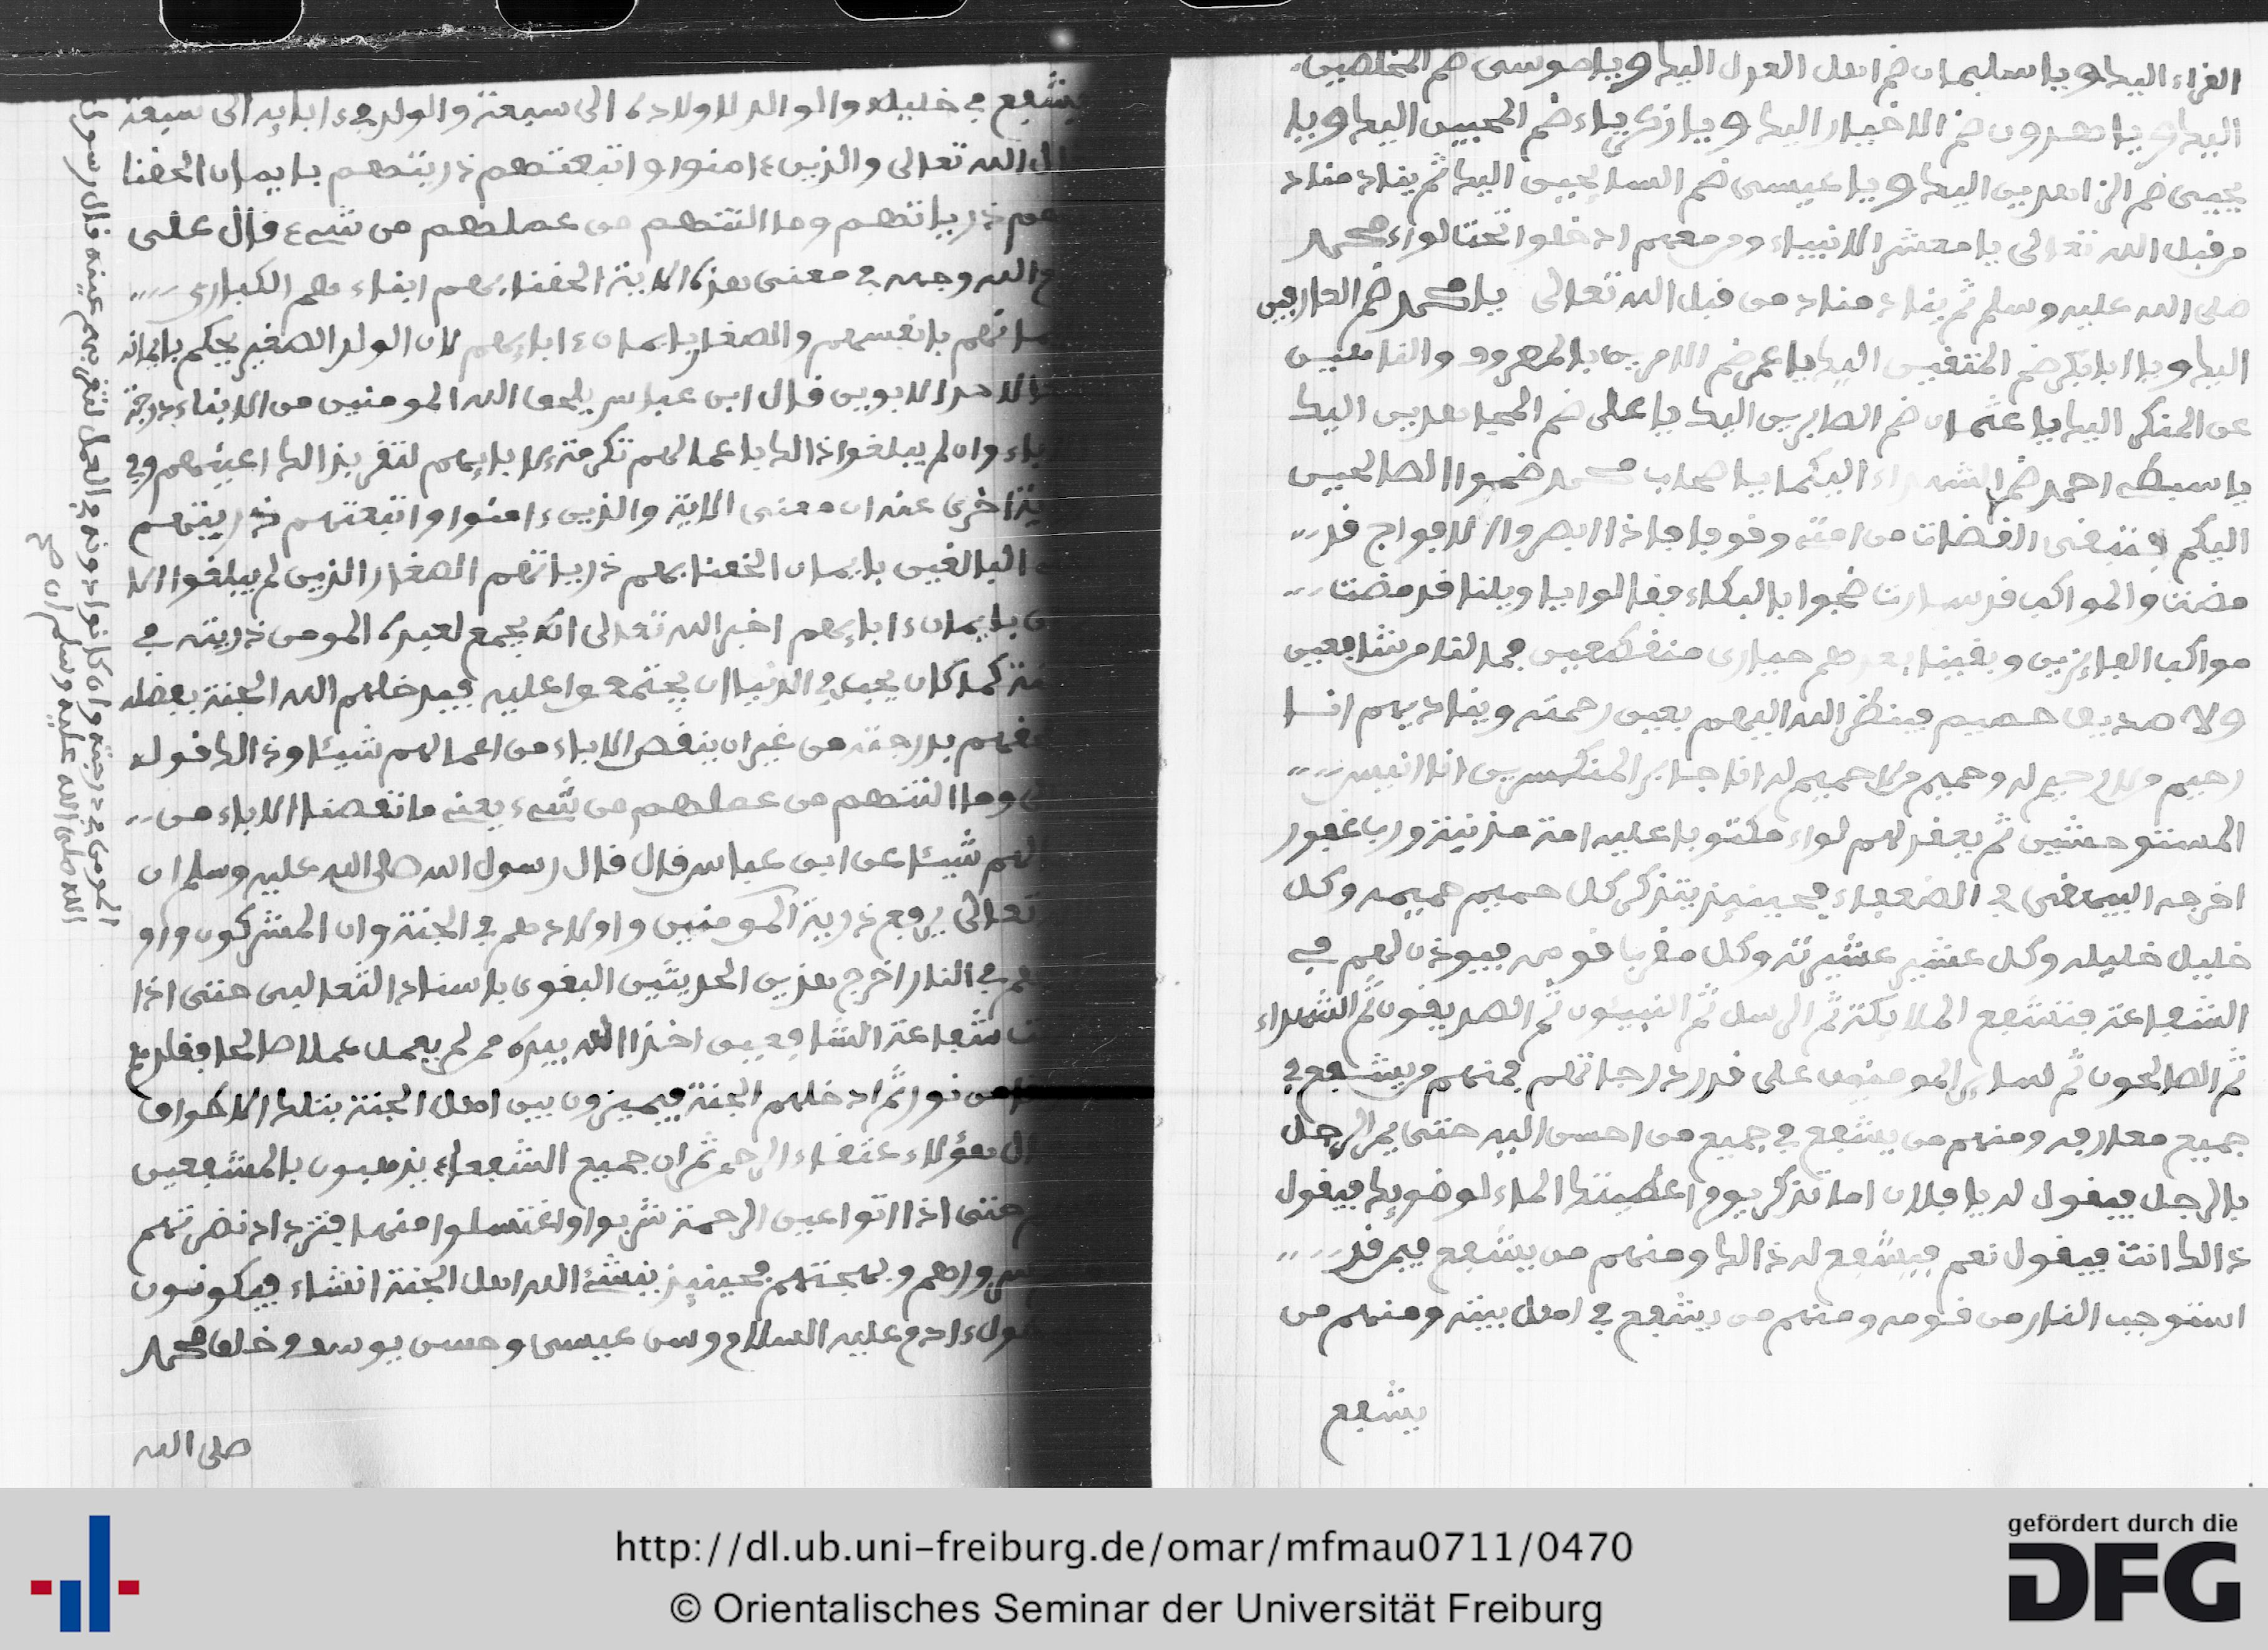 القراء اليك ويا سليمان ضم اهل العدل اليك ويا موسى ضم المخلصين
اليك ويا هرون ضم الاخيار اليك ويا زكرياء ضم المحبين اليك ويا
يحيى ضم الزاهدين اليك ويا عيسى ضم السايحين اليك ثم يناد مناد
من قبل الله تعالى يا معشر الانبياء ومن معهم ادخلوا تحت لواء محمد
صلى الله عليه وسلم ثم يناد مناد من قبل الله تعالى يا محمد ضم العارفين
اليك ويا ابا بكر ضم المتقين اليك يا عمر ضم الامرين بالمعروف والناهين
عن المنكر اليك يا عثمان ضم الصابرين اليك يا على ضم المجاهدين اليك
يا سبطى احمد ضم الشهداء اليكما يا اصحاب محمد ضموا الصالحين
اليكم فتبقى من امته وفوجا فاذا ابصروا الافواج قد
مضت والمواكب قد سارت ضجوا بالبكاء فقالوا يا ويلنا قد مضت
مواكب الفايزين وبقينا بعدهم حيارى منقطعين فما لنا من شافعين
ولا صديق حميم فينظر الله اليهم بعين رحمته ويناديهم انا
رحيم من لا رحيم له وحميم من لا حميم له انا جابر المنكسرين انا انيس
المستوحشين ثم يعقد لهم لواء مكتوبا عليه امة مذنبة ورب غفور
اخرجه البيهقى في الضعفاء فحينيذ يتذكر كل حميم حميمه وكل
خليل خليله وكل عشير عشيرته وكل مقربا قومه فيوذن لهم في
الشفاعة فتشفع الملايكة ثم الرسل ثم النبيئون ثم الصديقون ثم الشهداء
ثم الصالحون ثم لساير المومنين على قدر درجاتهم فمنهم من يشفع في
جميع معارفه ومنهم من يشفع في جميع من احسن اليه حتى يمر الرجل
بالرجل فيقول له يا فلان اما تذكر يوم اعطيتك الماء لوضويك فيقول
ذالك انت فيقول نعم فيشفع له ذالك ومنهم من يشفع فيمن قد
استوجب النار من قومه ومنهم من يشفع في اهل بيته ومنهم من
يشفع
يشفع في خليله والوالد لاولاده الى سبعة والولد في ءابايه الى سبعة
الله تعالى والذين ءامنوا واتبعتهم ذريتهم بايمان الحقنا
بهم ذرياتهم وما التنهم من عملهم من شيء قال على
الله وجهه في معنى هذه الاية الحقنا بهم ابناءهم الكبارى
بانفسهم والصغار بايمان ءابايهم لان الولد الصغير يحكم بايمانه
الابوين قال ابن عباس يلحق الله المومنين من الابناء بدرجة
وان لم يبلغوا ذالك باعمالهم تكرمة لابايهم لتقر بذالك اعينهم وفي
اخرى عنه ان معنى الاية والذين ءامنوا واتبعتهم ذريتهم
البالغين بايمان الحقنا بهم ذرياتهم الصغار الذين لم يبلغوا الا
بايمان ءابايهم اخبر الله تعالى انه يجمع لعبده المومن ذريته في
كما كان يحب في الدنيا ان يجتمعوا عليه فيدخلهم الله الجنة بفضله
بدرجته من غير ان ينقص الاباء من اعمالهم شيئا وذالك قوله
وما التنهم من عملهم من شيء يعني ما نقصنا الاباء من
شيئا عن ابن عباس قال قال رسول الله صلى الله عليه وسلم ان
تعالى يرفع ذرية المومنين واولادهم في الجنة وان المشركون واو
في النار اخرج هذين الحديثين البغوى باسناد الثعالبى حتى اذا
شفاعة الشافعين اخذ الله بيده من لم يعمل عملا صالحا
من نور ثم ادخلهم الجنة فيميزون بين اهل الجنة بتلك الاطواق
هؤلاء عتقاء الرحمن ثم ان جميع الشفعاء يذهبون بالمشفعين
حتى اذا اتوا عين الرحمة شربوا واغتسلوا منها فتزداد نضرتهم
وبهجتهم فحينيذ ينشئ الله اهل الجنة انشاء فيكونون
ءادم عليه السلام وسن عيسى وحسن يوسف وخلق محمد
صلى الله
المومن في درجته وان كانوا دونه في العمل لتقر بهم عينه قال رسول
الله صلى الله عليه وسلم ان
http://dl.ub.uni-freiburg.de/omar/mfmau0711/0470
© Orientalisches Seminar der Universität Freiburg
gefördert durch die
DFG